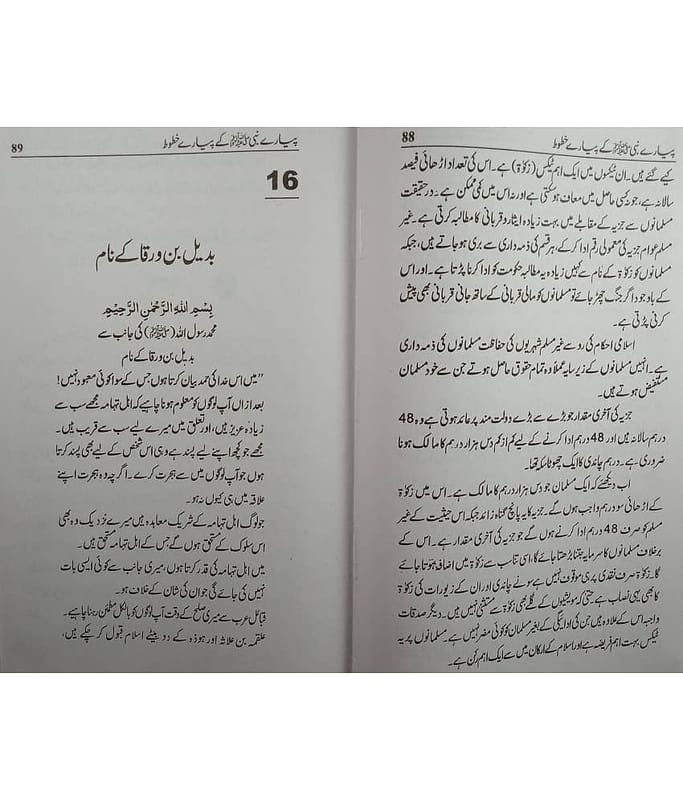 88
پیارے نبی ﷺ کے پیارے خطوط
کیے گئے ہیں۔ ان ٹیکسوں میں ایک اہم ٹیکس (زکوٰۃ) ہے۔ اس کی تعداد اڑھائی فیصد
سالانہ ہے، جو نہ کسی حاصل میں معاف ہو سکتی ہے اور نہ اس میں کمی ممکن ہے۔ در حقیقت
مسلمانوں سے جزیہ کے مقابلے میں بہت زیادہ ایثار و قربانی کا مطالبہ کرتی ہے۔ غیر
مسلم عوام جزیہ کی معمولی رقم ادا کر کے، ہر قسم کی ذمہ داری سے بری ہو جاتے ہیں، جبکہ
مسلمانوں کو زکوٰۃ کے نام سے کہیں زیادہ یہ مطالبہ حکومت کو ادا کرنا پڑتا ہے۔ اور اس
کے باوجود اگر جنگ چھڑ جائے تو مسلمانوں کو مالی قربانی کے ساتھ جانی قربانی بھی پیش
کرنی پڑتی ہے۔
اسلامی احکام کی رو سے غیر مسلم شہریوں کی حفاظت مسلمانوں کی ذمہ داری
ہے۔ انہیں مسلمانوں کے زیر سایہ عملاً وہ تمام حقوق حاصل ہوتے جن سے خود مسلمان
مستفیض ہوتے ہیں۔
جزیہ کی آخری مقدار جو بڑے سے بڑے دولت مند پر عائد ہوتی ہے وہ 48
درہم سالانہ ہیں اور 48 درہم ادا کرنے کے لیے کم از کم دس ہزار درہم کا مالک ہونا
ضروری ہے۔ درہم چاندی کا ایک چھوٹا سکہ تھا۔
اب دیکھئے کہ ایک مسلمان جو دس ہزار درہم کا مالک ہے۔ اس میں زکوٰۃ
کے اڑھائی سو درہم واجب ہوں گے۔ جزیہ کا یہ پانچ گنا زائد جبکہ اس حیثیت کے غیر
مسلم کو صرف 48 درہم ادا کرنے ہوں گے جو جزیہ کی آخری مقدار ہے۔ اس کے
برخلاف مسلمانوں کا سرمایہ جتنا بڑھتا جائے گا، اسی تناسب سے زکوٰۃ میں اضافہ ہوتا جائے
گا۔ زکوٰۃ صرف نقدی پر ہی موقوف نہیں ہے سونے چاندی اور ان کے زیورات کی زکوٰۃ
کا بھی یہی نصاب ہے۔ حتیٰ کہ مویشیوں کے گلے بھی زکوٰۃ سے مستثنیٰ نہیں ہیں۔ دیگر صدقات
واجب اس کے علاوہ ہیں جن کی ادائیگی کے بغیر مسلمان کو کوئی مفر نہیں ہے۔ مسلمانوں پر یہ
ٹیکس بہت اہم فریضہ ہے اور اسلام کے ارکان میں سے ایک اہم رکن ہے۔
پیارے نبی ﷺ کے پیارے خطوط
89
16
بدیل بن ورقا کے نام
بِسْمِ اللهِ الرَّحْمٰنِ الرَّحِيْمِ
محمد رسول اللہ (ﷺ) کی جانب سے
بدیل بن ورقا کے نام
”میں اس خدا کی حمد بیان کرتا ہوں جس کے سوا کوئی معبود نہیں!
بعد ازاں آپ لوگوں کو معلوم ہونا چاہیے کہ اہل تہامہ مجھے سب سے
زیادہ عزیز ہیں، اور تعلق میں میرے لیے سب سے قریب ہیں۔
مجھے جو کچھ اپنے لیے پسند ہے وہی اس شخص کے لیے بھی پسند کرتا
ہوں جو آپ لوگوں میں سے ہجرت کرے۔ اگرچہ وہ ہجرت اپنے
علاقہ میں ہی کیوں نہ ہو۔
جو لوگ اہل تہامہ کے شریک معاہدہ ہیں میرے نزدیک وہ بھی
اس سلوک کے مستحق ہوں گے جس کے اہل تہامہ مستحق ہیں۔
میں اہل تہامہ کی قدر کرتا ہوں، میری جانب سے کوئی ایسی بات
نہیں کی جائے گی جو ان کی شان کے خلاف ہو۔
قبائل عرب سے میری صلح کے وقت آپ لوگوں کو بالکل مطمئن رہنا چاہیے۔
علقمہ بن علاثہ اور ہوذہ کے دو بیٹے اسلام قبول کر چکے ہیں،